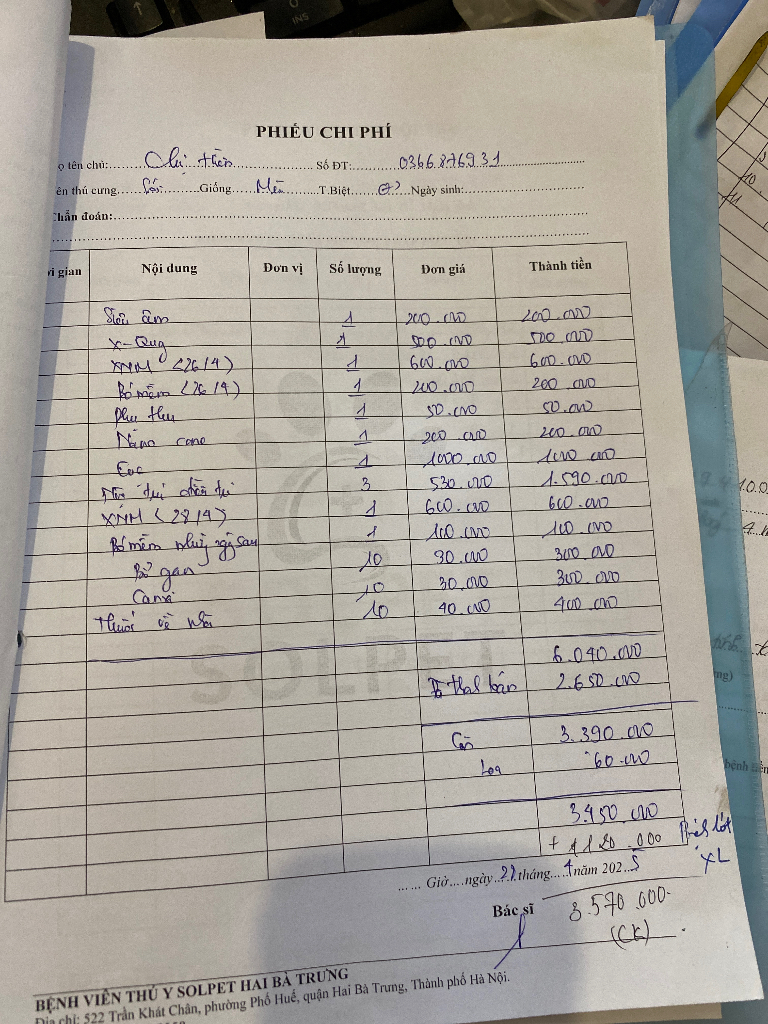 INS
PHIẾU CHI PHÍ
ọ tên chủ:........Chị Hiền........ Số ĐT:........0366876931........
ên thú cưng........ Giống....Mèo....T.Biệt........Ngày sinh:........
Chẩn đoán:........
ời gian Nội dung Đơn vị Số lượng Đơn giá Thành tiền
Siêu âm 1 200.000 200.000
X-Qug 1 500.000 500.000
XNM (26/4) 1 600.000 600.000
Bó mềm (26/4) 1 200.000 200.000
phụ thu 1 50.000 50.000
Nẹp cano 1 200.000 200.000
1 1000.000 1000.000
3 530.000 1.590.000
XNM (28/4) 1 600.000 600.000
Bó mềm những ngày sau 1 100.000 100.000
Bổ gan 10 30.000 300.000
Canxi 10 30.000 300.000
Thuốc về nhà 10 40.000 400.000
6.040.000
Đã thah toán 2.650.000
Còn 3.390.000
Loa 60.000
3.450.000
+ 120.000 XL
...... Giờ....ngày.....tháng....4năm 2025
Bác sĩ 3.570.000
(CK)
SOLPET
BỆNH VIỆN THÚ Y SOLPET HAI BÀ TRƯNG
Địa chỉ: 522 Trần Khát Chân, phường Phố Huế, quận Hai Bà Trưng, Thành phố Hà Nội.